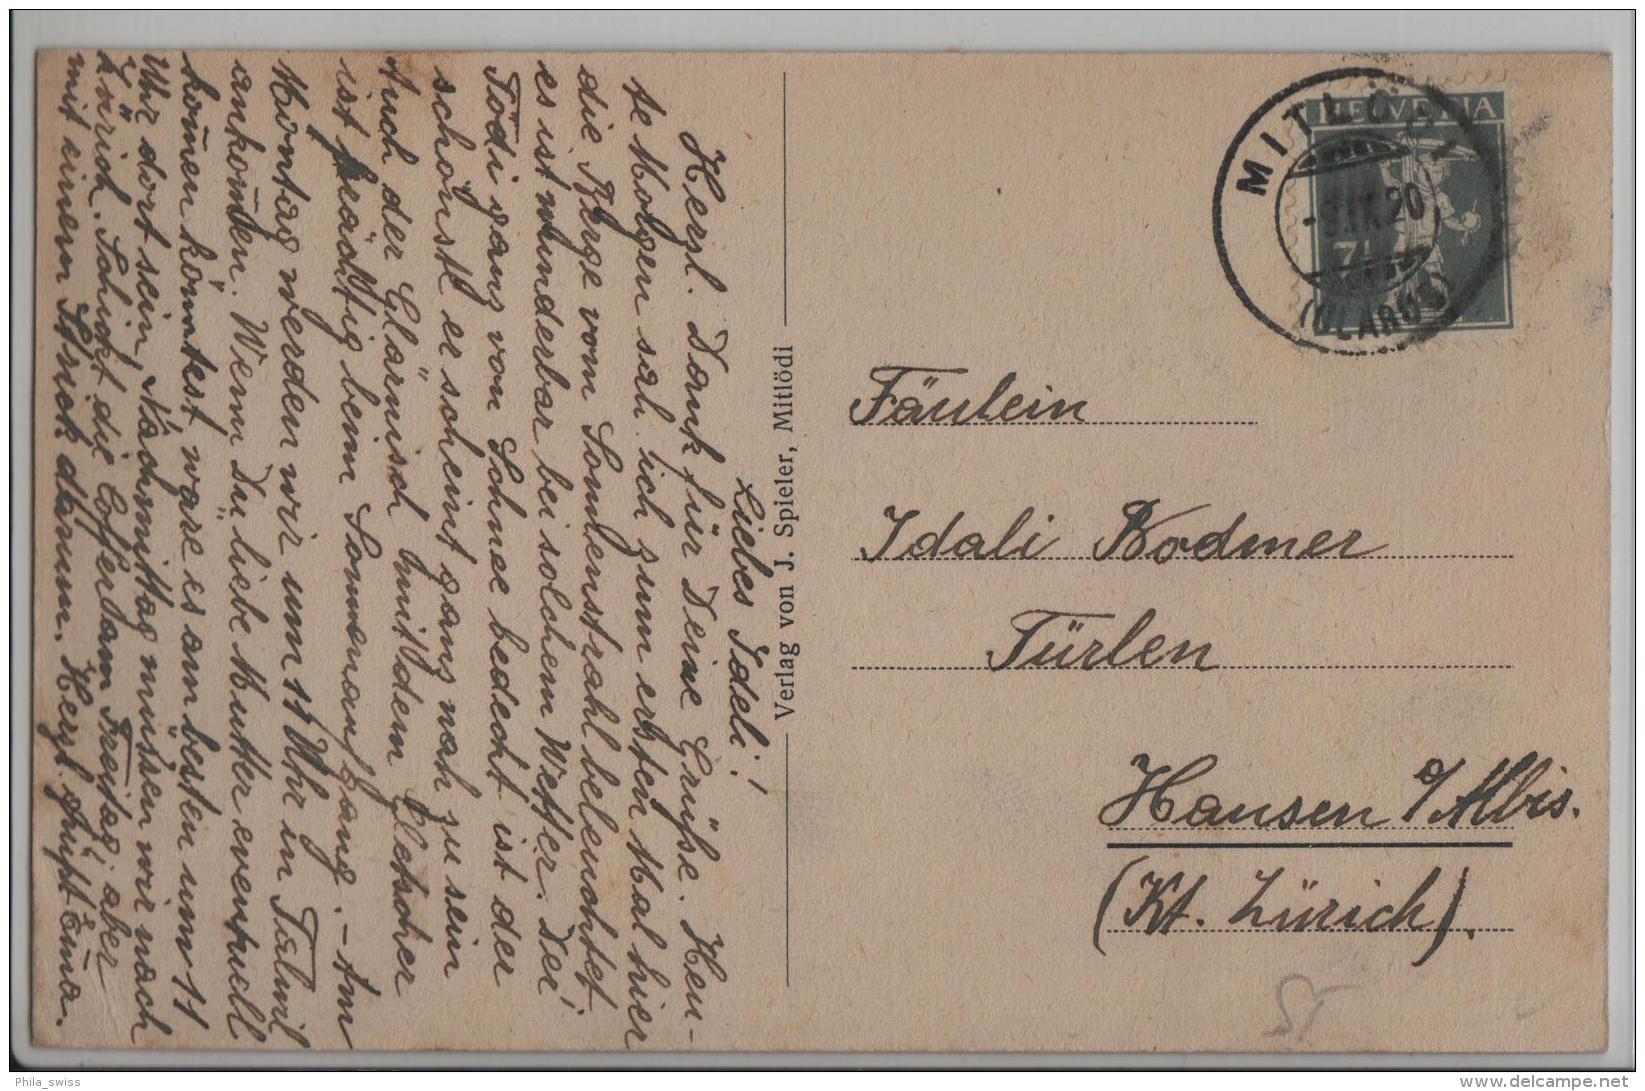 Liebes Ideli!
Herzl. Dank für Deine Grüße. Heu-
te Morgen sah ich zum ersten Mal hier
die Berge vom Sonnenstrahl beleuchtet.
es ist wunderbar bei solchem Wetter. Der
Tödi ganz von Schnee bedeckt ist der
schönste er scheint ganz nah zu sein
Auch der Glärnisch mit den Gletscher
ist prächtig beim Sonnenaufgang. - Am
Montag werden wir um 11 Uhr in Talwil
ankom̄en. Wenn Du liebe Mutter eventuell
kom̄en könntest wäre es am besten um 11
Uhr dort sein, Nachmittag müssen wir nach
Zürich. Schickt die Coffer am Freitag aber
mit einem Strick darum. Herzl. grüßt Erna.
Verlag von J. Spieler, Mitlödi
HELVETIA
7½
MITLÖDI
-8.IX.20
(GLARUS)
Fäulein
Idali Bodmer
Türlen
Hausen a/Albis.
(Kt. Zürich).
ST
Phila_swiss
delcampe.net